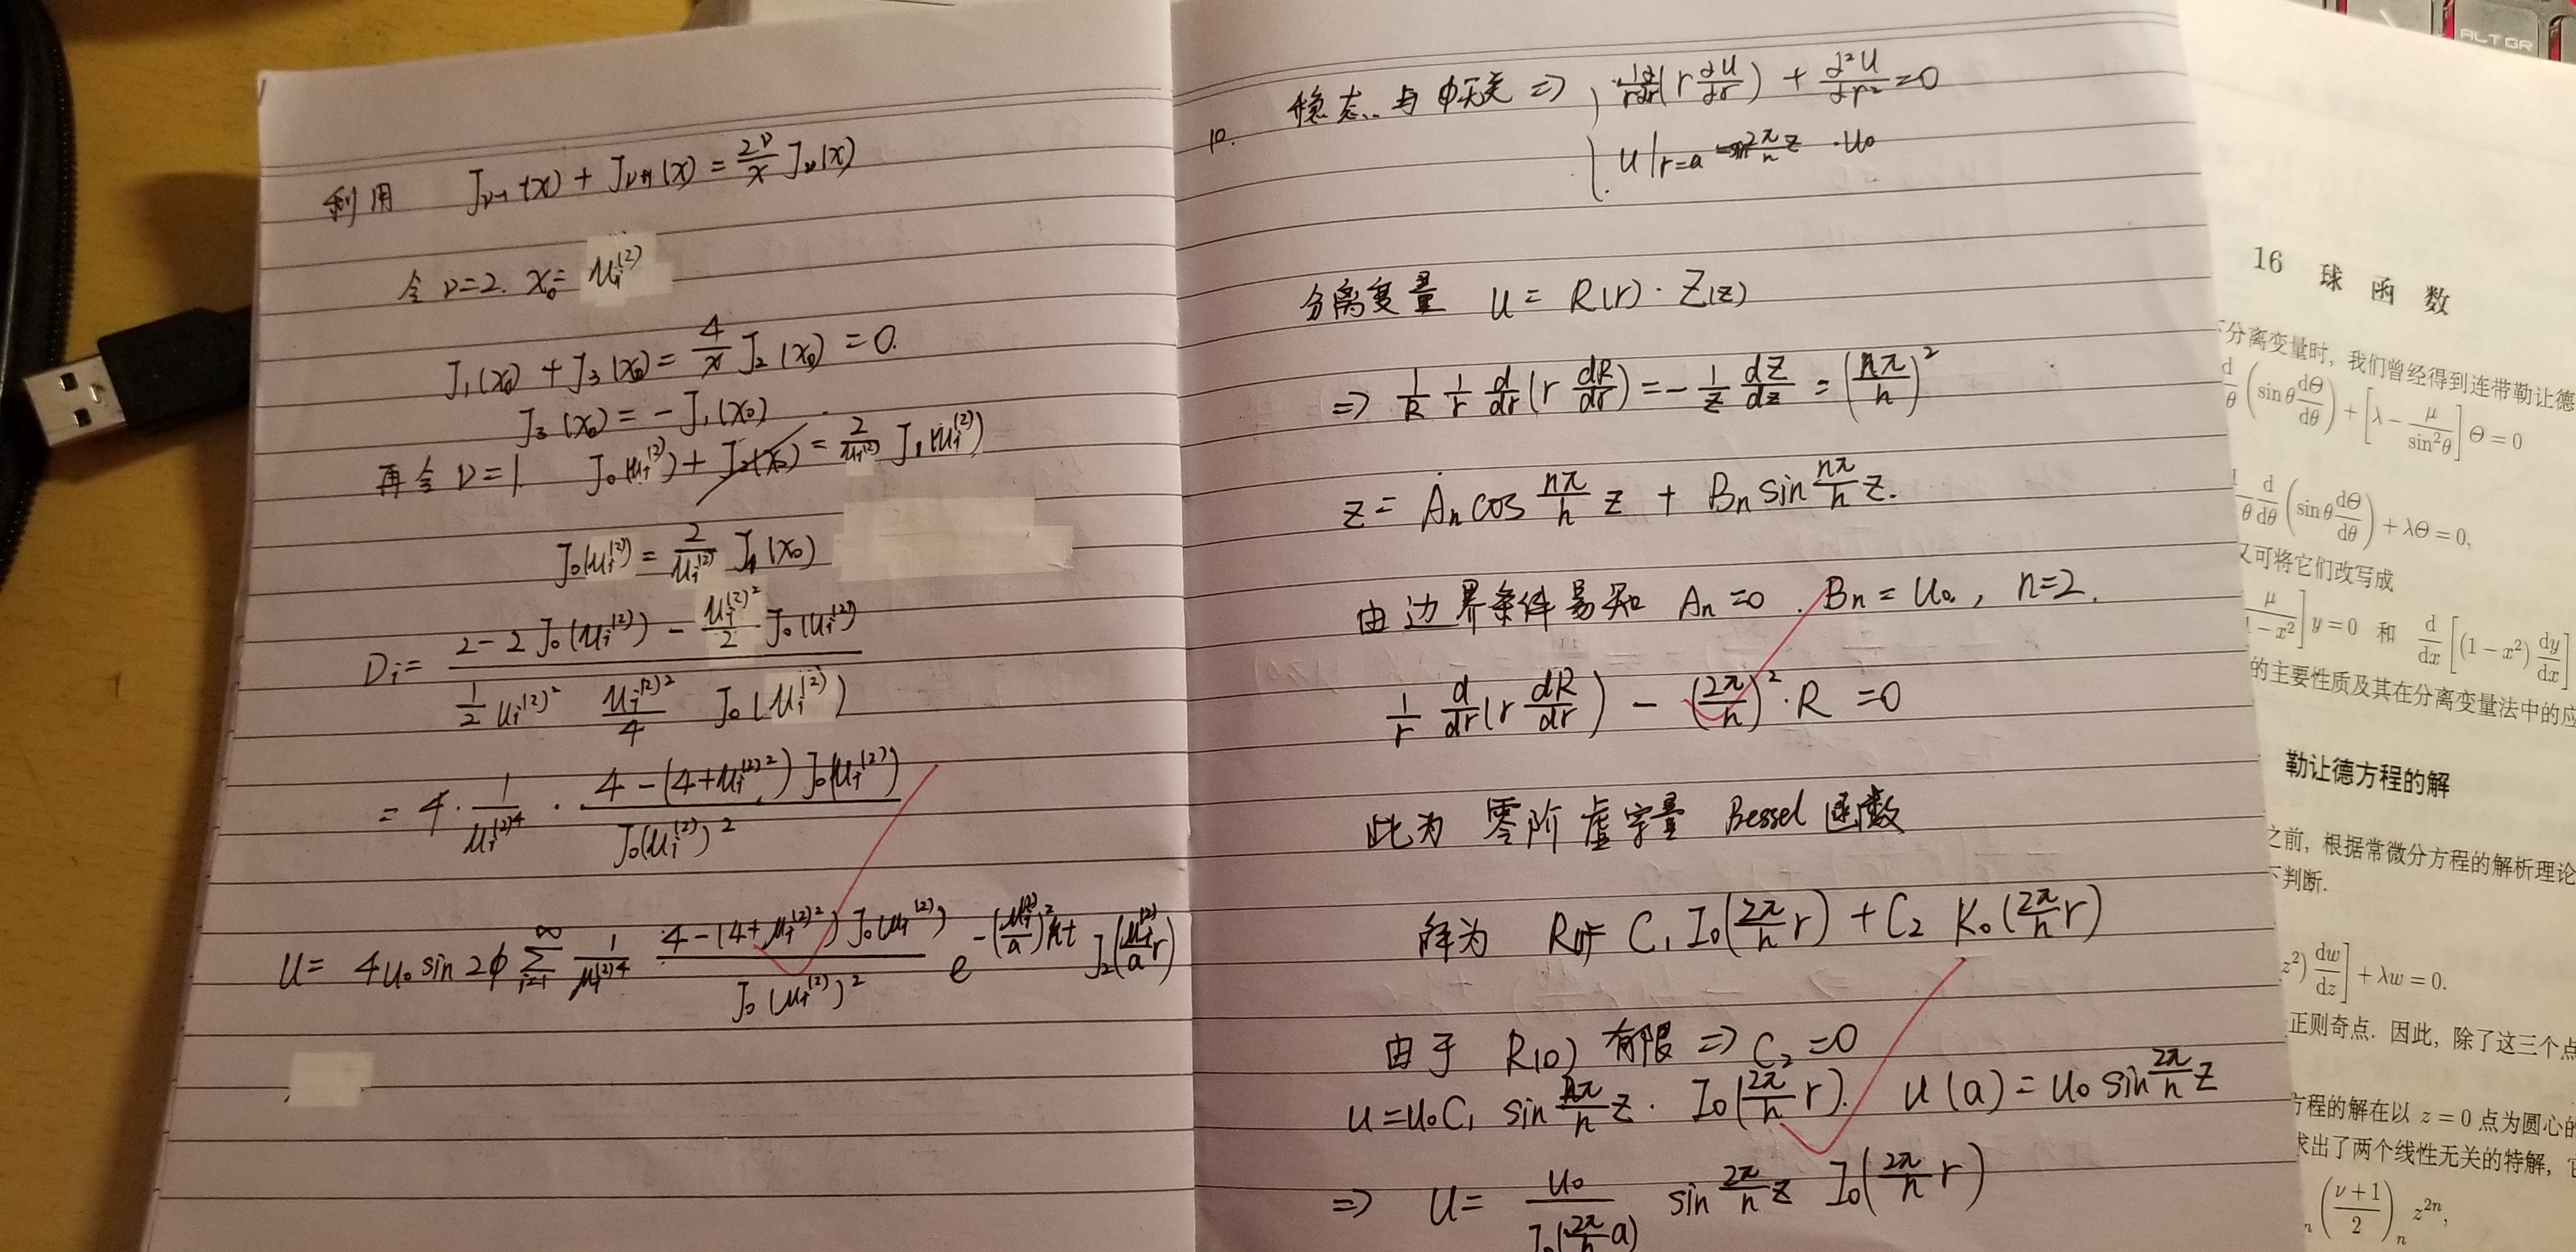 利用 J_{ν-1}(x) + J_{ν+1}(x) = \frac{2ν}{x} J_ν(x)
令 ν=2. x_0= μ_i^{(2)}
J_1(x_0) + J_3(x_0) = \frac{4}{x} J_2(x_0) = 0.
J_3(x_0) = -J_1(x_0)
再令 ν=1. J_0(μ_i^{(2)}) + J_2(x_0) = \frac{2}{μ_i^{(2)}} J_1(μ_i^{(2)})
J_0(μ_i^{(2)}) = \frac{2}{μ_i^{(2)}} J_1(x_0)
D_i = \frac{2-2J_0(μ_i^{(2)}) - \frac{μ_i^{(2)2}}{2} J_0(μ_i^{(2)})}{\frac{1}{2} μ_i^{(2)2} \frac{μ_i^{(2)2}}{4} J_0(μ_i^{(2)})}
= 4 · \frac{1}{μ_i^{(2)4}} · \frac{4-(4+μ_i^{(2)2}) J_0(μ_i^{(2)})}{J_0(μ_i^{(2)})^2}
u = 4u_0 sin2φ \sum_{i=1}^{∞} \frac{1}{μ_i^{(2)4}} \frac{4-(4+μ_i^{(2)2}) J_0(μ_i^{(2)})}{J_0(μ_i^{(2)})^2} e^{-(\frac{μ_i^{(2)}}{a})^2 kt} J_2(\frac{μ_i^{(2)}}{a} r)
10. 稳态.. 与φ无关 => \frac{1}{r}\frac{∂}{∂r}(r \frac{∂u}{∂r}) + \frac{∂^2u}{∂r^2} = 0
u|_{r=a} = sin\frac{2π}{h}z · u_0
分离变量 u = R(r) · Z(z)
=> \frac{1}{R} \frac{1}{r} \frac{d}{dr}(r \frac{dR}{dr}) = -\frac{1}{z} \frac{dZ}{dz} = (\frac{nπ}{h})^2
z = A_n cos\frac{nπ}{h}z + B_n sin\frac{nπ}{h}z.
由边界条件易知 A_n=0 . B_n = u_0, n=2.
\frac{1}{r} \frac{d}{dr}(r \frac{dR}{dr}) - (\frac{2π}{h})^2 · R = 0
此为 零阶虚宗量 Bessel 函数
解为 R(r)= C_1 I_0(\frac{2π}{h}r) + C_2 K_0(\frac{2π}{h}r)
由于 R(0) 有限 => C_2=0
u=u_0C_1 sin\frac{nπ}{h}z · I_0(\frac{2π}{h}r). u(a) = u_0 sin\frac{2π}{h}z
=> u = \frac{u_0}{I_0(\frac{2π}{h}a)} sin\frac{2π}{h}z I_0(\frac{2π}{h}r)
ALT GR
16 球函数
分离变量时，我们曾经得到连带勒让德
(sinθ\frac{dΘ}{dθ}) + [λ - \frac{μ}{sin^2θ}] Θ = 0
\frac{d}{dθ}(sinθ\frac{dΘ}{dθ}) + λΘ = 0,
又可将它们改写成
y = 0 和 \frac{d}{dx}[(1-x^2)\frac{dy}{dx}]
的主要性质及其在分离变量法中的应
勒让德方程的解
之前，根据常微分方程的解析理论
判断.
z^2)\frac{dw}{dz}] + λw = 0.
正则奇点. 因此，除了这三个点
方程的解在以 z = 0 点为圆心的
求出了两个线性无关的特解，
(\frac{ν+1}{2})_n z^{2n},